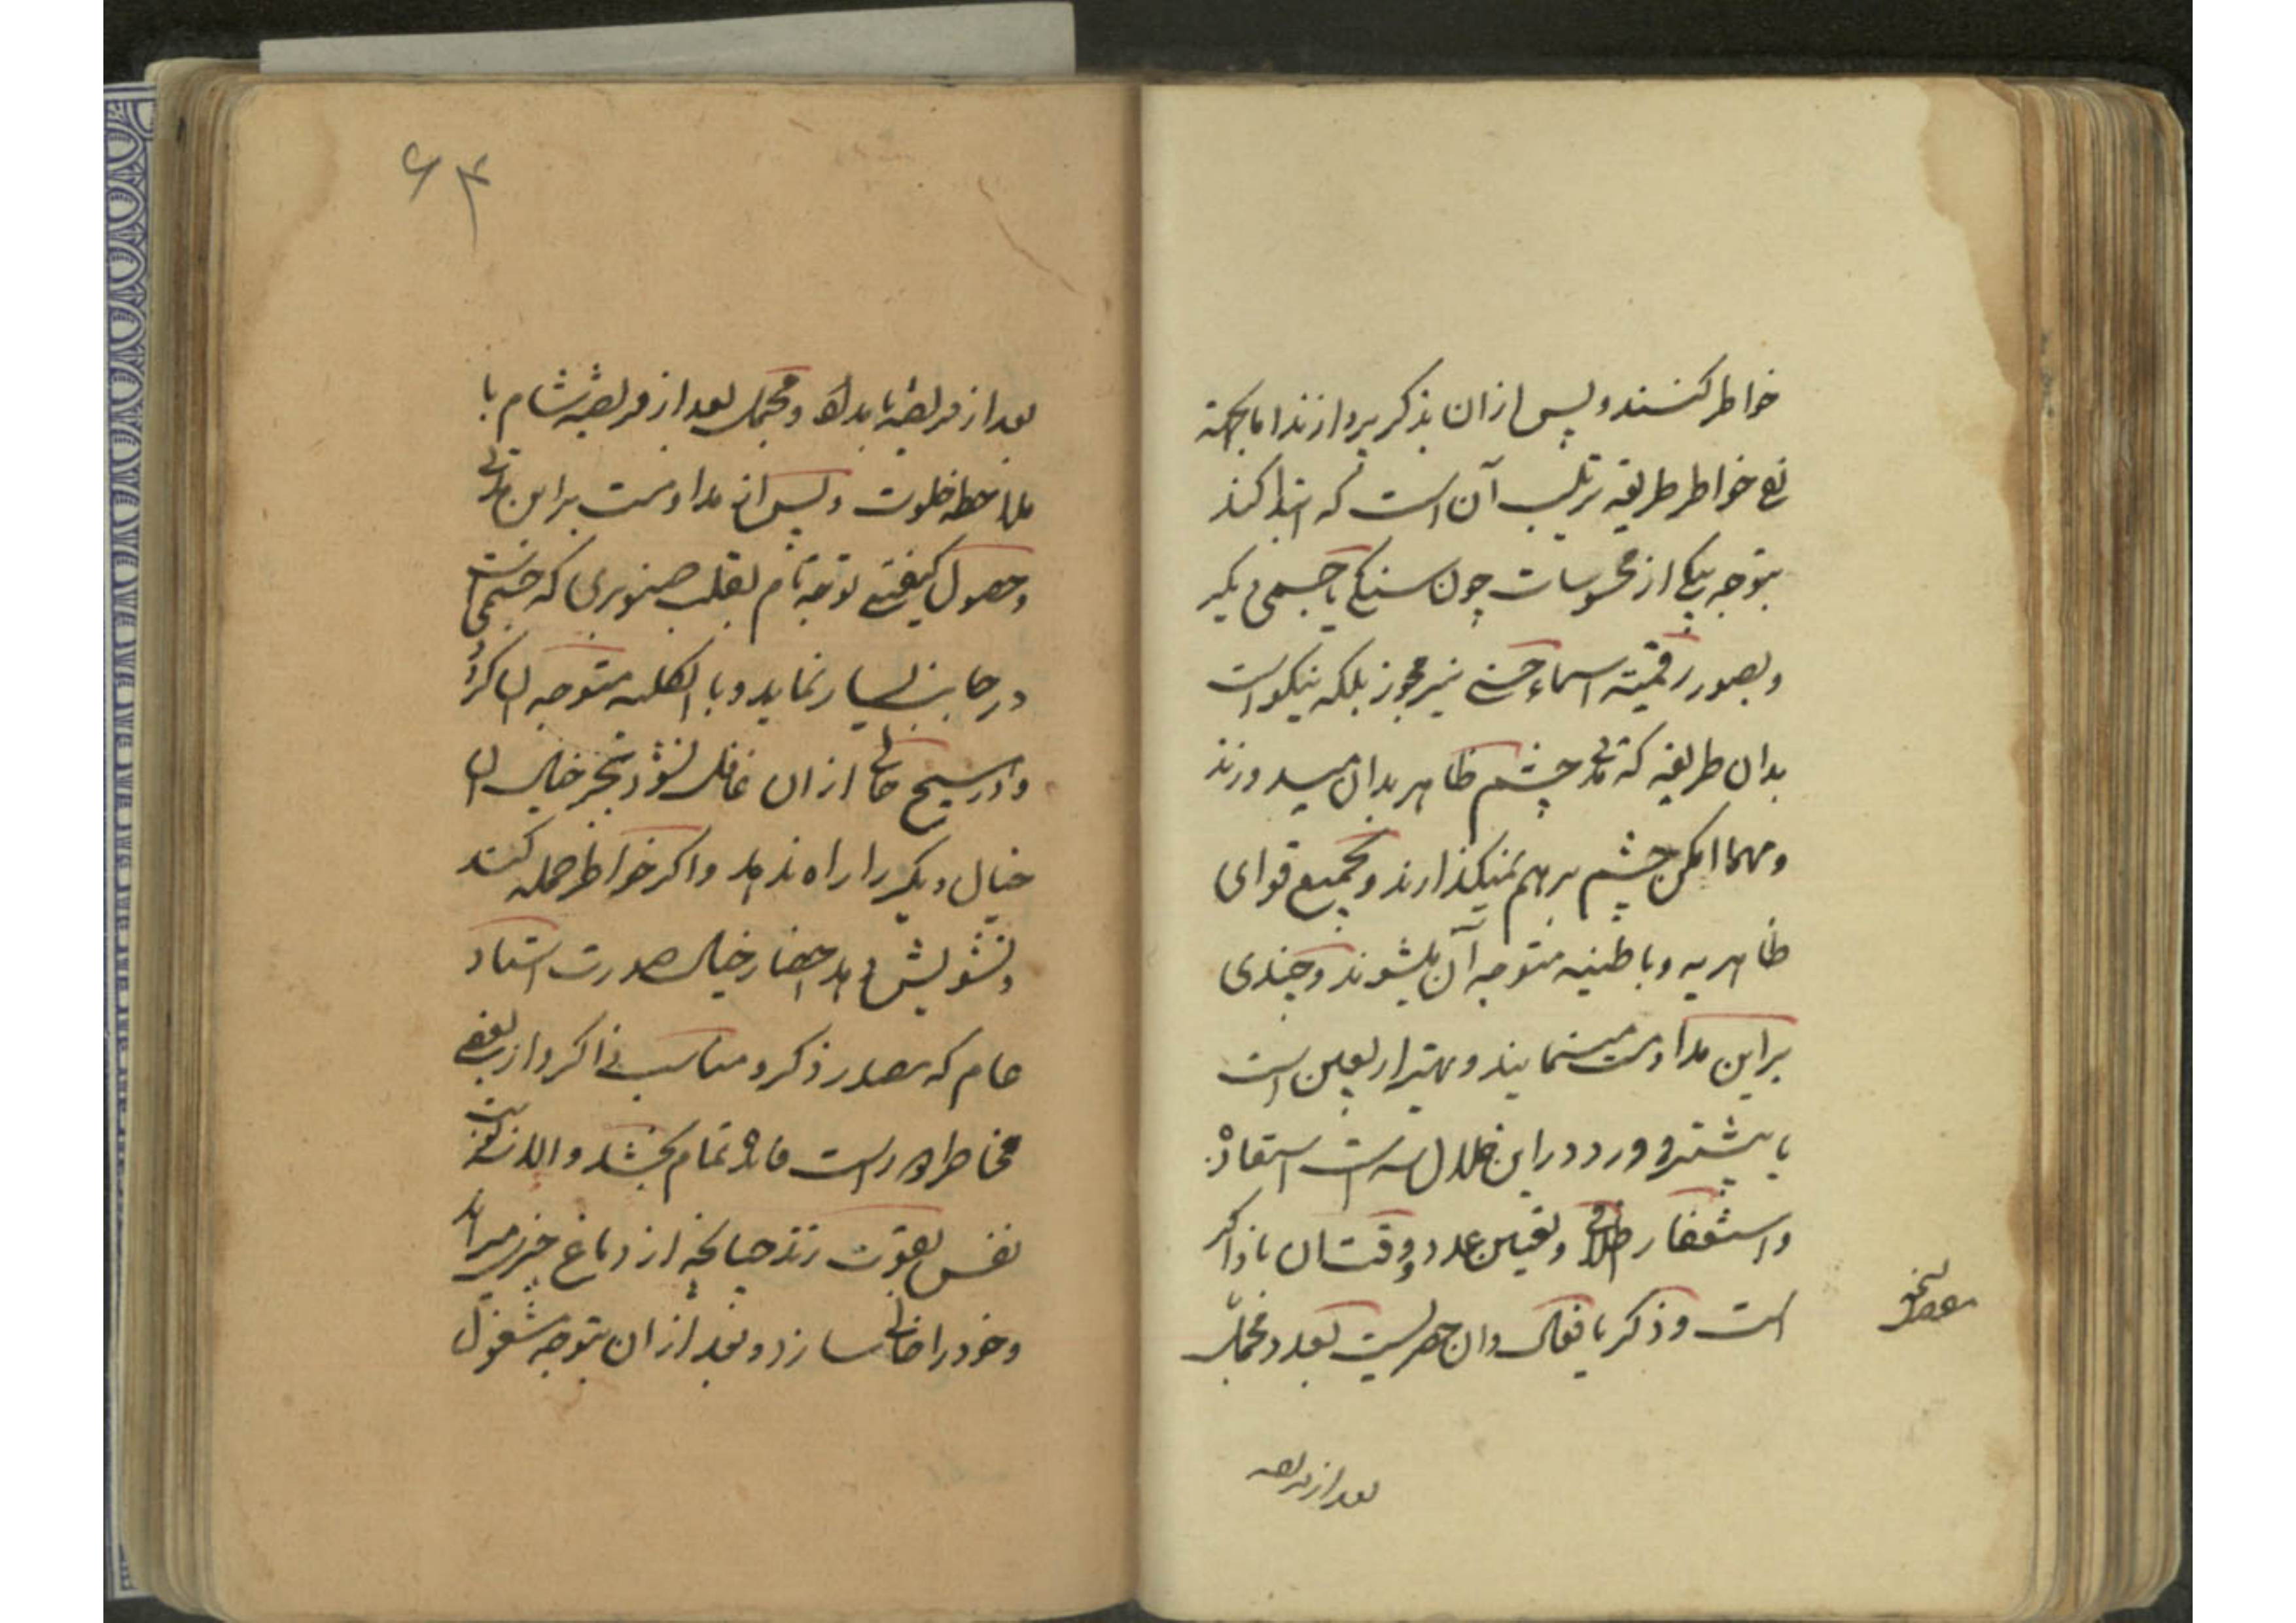 خواطر کنند و پس از ان بذکر پردازند اما بجهة
نفی خواطر طریقه ترتیب آن است که ابتدا کنند
بتوجه بیکی از محسوسات چون سنگی یا جسمی دیگر
و بصور رقمیّه اسماء حسنی نیز مجوز بلکه نیکو است
بدان طریقه که مدتی چشم ظاهر بدان میدوزند
و مهما امکن چشم برهم نمیگذارند و بجمیع قوای
ظاهریه و باطنیه متوجه آن میشوند و چندی
براین مداومت مینمایند و بهتر اربعین است
یا بیشتر و ورد در این خلال سه است استفاده
واستغفار و تعیین عدد و وقتشان با ذاکر
است و ذکر یا فعال وان بعدد مجمل
بعد از فریضه
بعد از فریضه بامداد و مجمل بعد از فریضه شام با
ملاحظه خلوت و پس از مداومت براین مدتی
و حصول کیفیتی توجه تام بقلب صنوبری که جسمی است
در جانب یسار نماید و بالکلیه متوجه ان گردد
و در هیچ حالی ازان غافل نشود و بجز خیال ان
خیال دیگر را راه ندهد و اگر خواطر حمله کنند
و تشویش دهد احضار خیال صورت استاد
عام که مصدر ذکر و مناسب ذاکر و از بعضی
مخاطرات دور است فایده تمام بخشد و الا نه
نفس بقوّت زند چنانچه از دماغ چیزی میراند
و خود را خالی سازد و بعد ازان بتوجه مشغول
۶۴